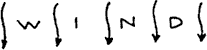 W I N D